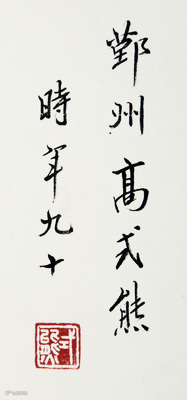 鄞州高式熊
時年九十
式熊